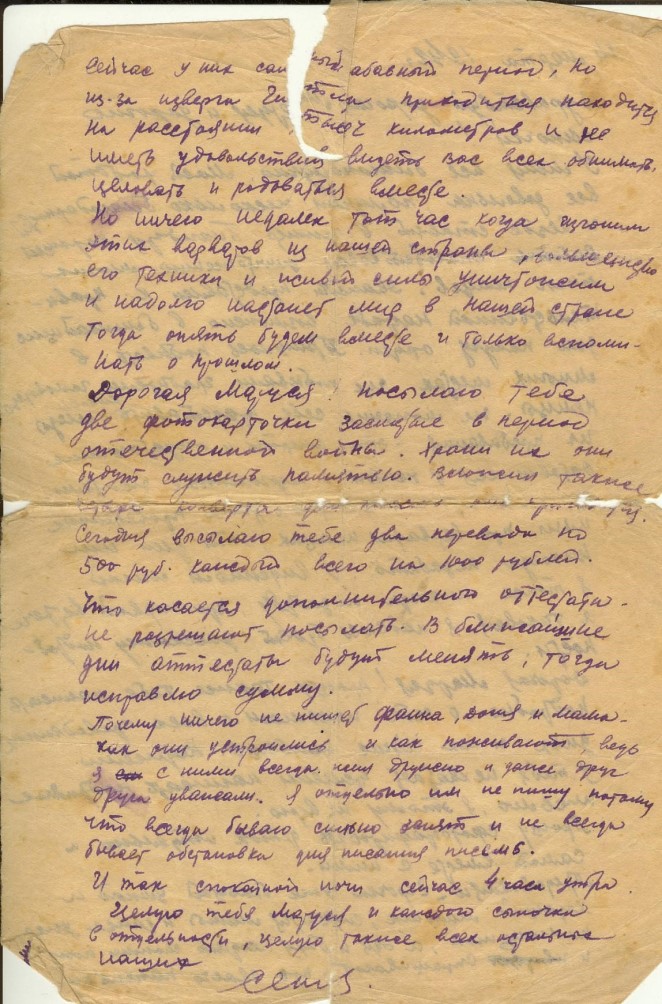 Сейчас у них самый забавный период, но
из-за изверга Гитлера приходиться находится
на расстоянии тысяч километров и не
иметь удовольствия видеть вас всех обнимать,
целовать и радоваться вместе.
Но ничего недалек тот час когда изгоним
этих варваров из нашей страны,
его техники и живой силы уничтожим
и надолго настанет мир в нашей стране
Тогда опять будем вместе и только вспоми-
нать о прошлом.
Дорогая Маруся! посылаю тебе
две фотокарточки заснятые в период
отечественной войны. Храни их они
будут служить памятью. Вложил также
конверта
Сегодня высылаю тебе два перевода по
500 руб. каждый всего на 1000 рублей.
Что касается дополнительного оттестата-
не разрешают посылать. В ближайшие
дни аттестаты будут менять, тогда
исправлю сумму.
Почему ничего не пишет Фаина, Дотя и мама-
как они устроились и как поживают, ведь
я с ними всегда жил дружно и даже друг
друга уважали. Я отдельно им не пишу потому
что всегда бываю сильно занят и не всегда
бывает обстановка для писания письма.
И так спокойной ночи сейчас 4 часа утра.
Целую тебя Маруся и каждого сыночка
в отдельности, целую также всех остальных
наших
Сеня.